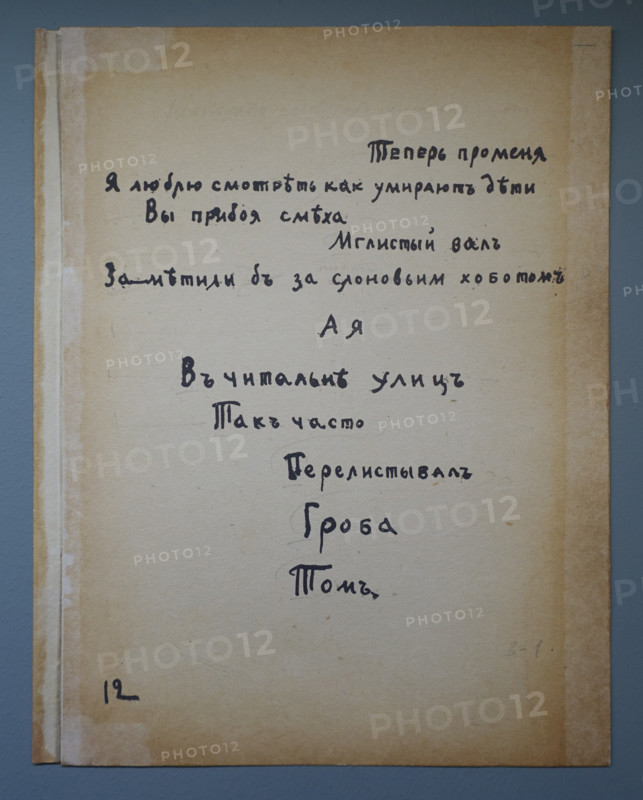 Теперь променя
Я люблю смотрѣть как умираютъ дѣти
Вы прибоя смѣха
Мглистый валъ
Замѣтили бъ за слоновьим хоботомъ
А я
Въ читальнѣ улицъ
Такъ часто
Перелистывалъ
Гроба
Томъ.
12
PHOTO12